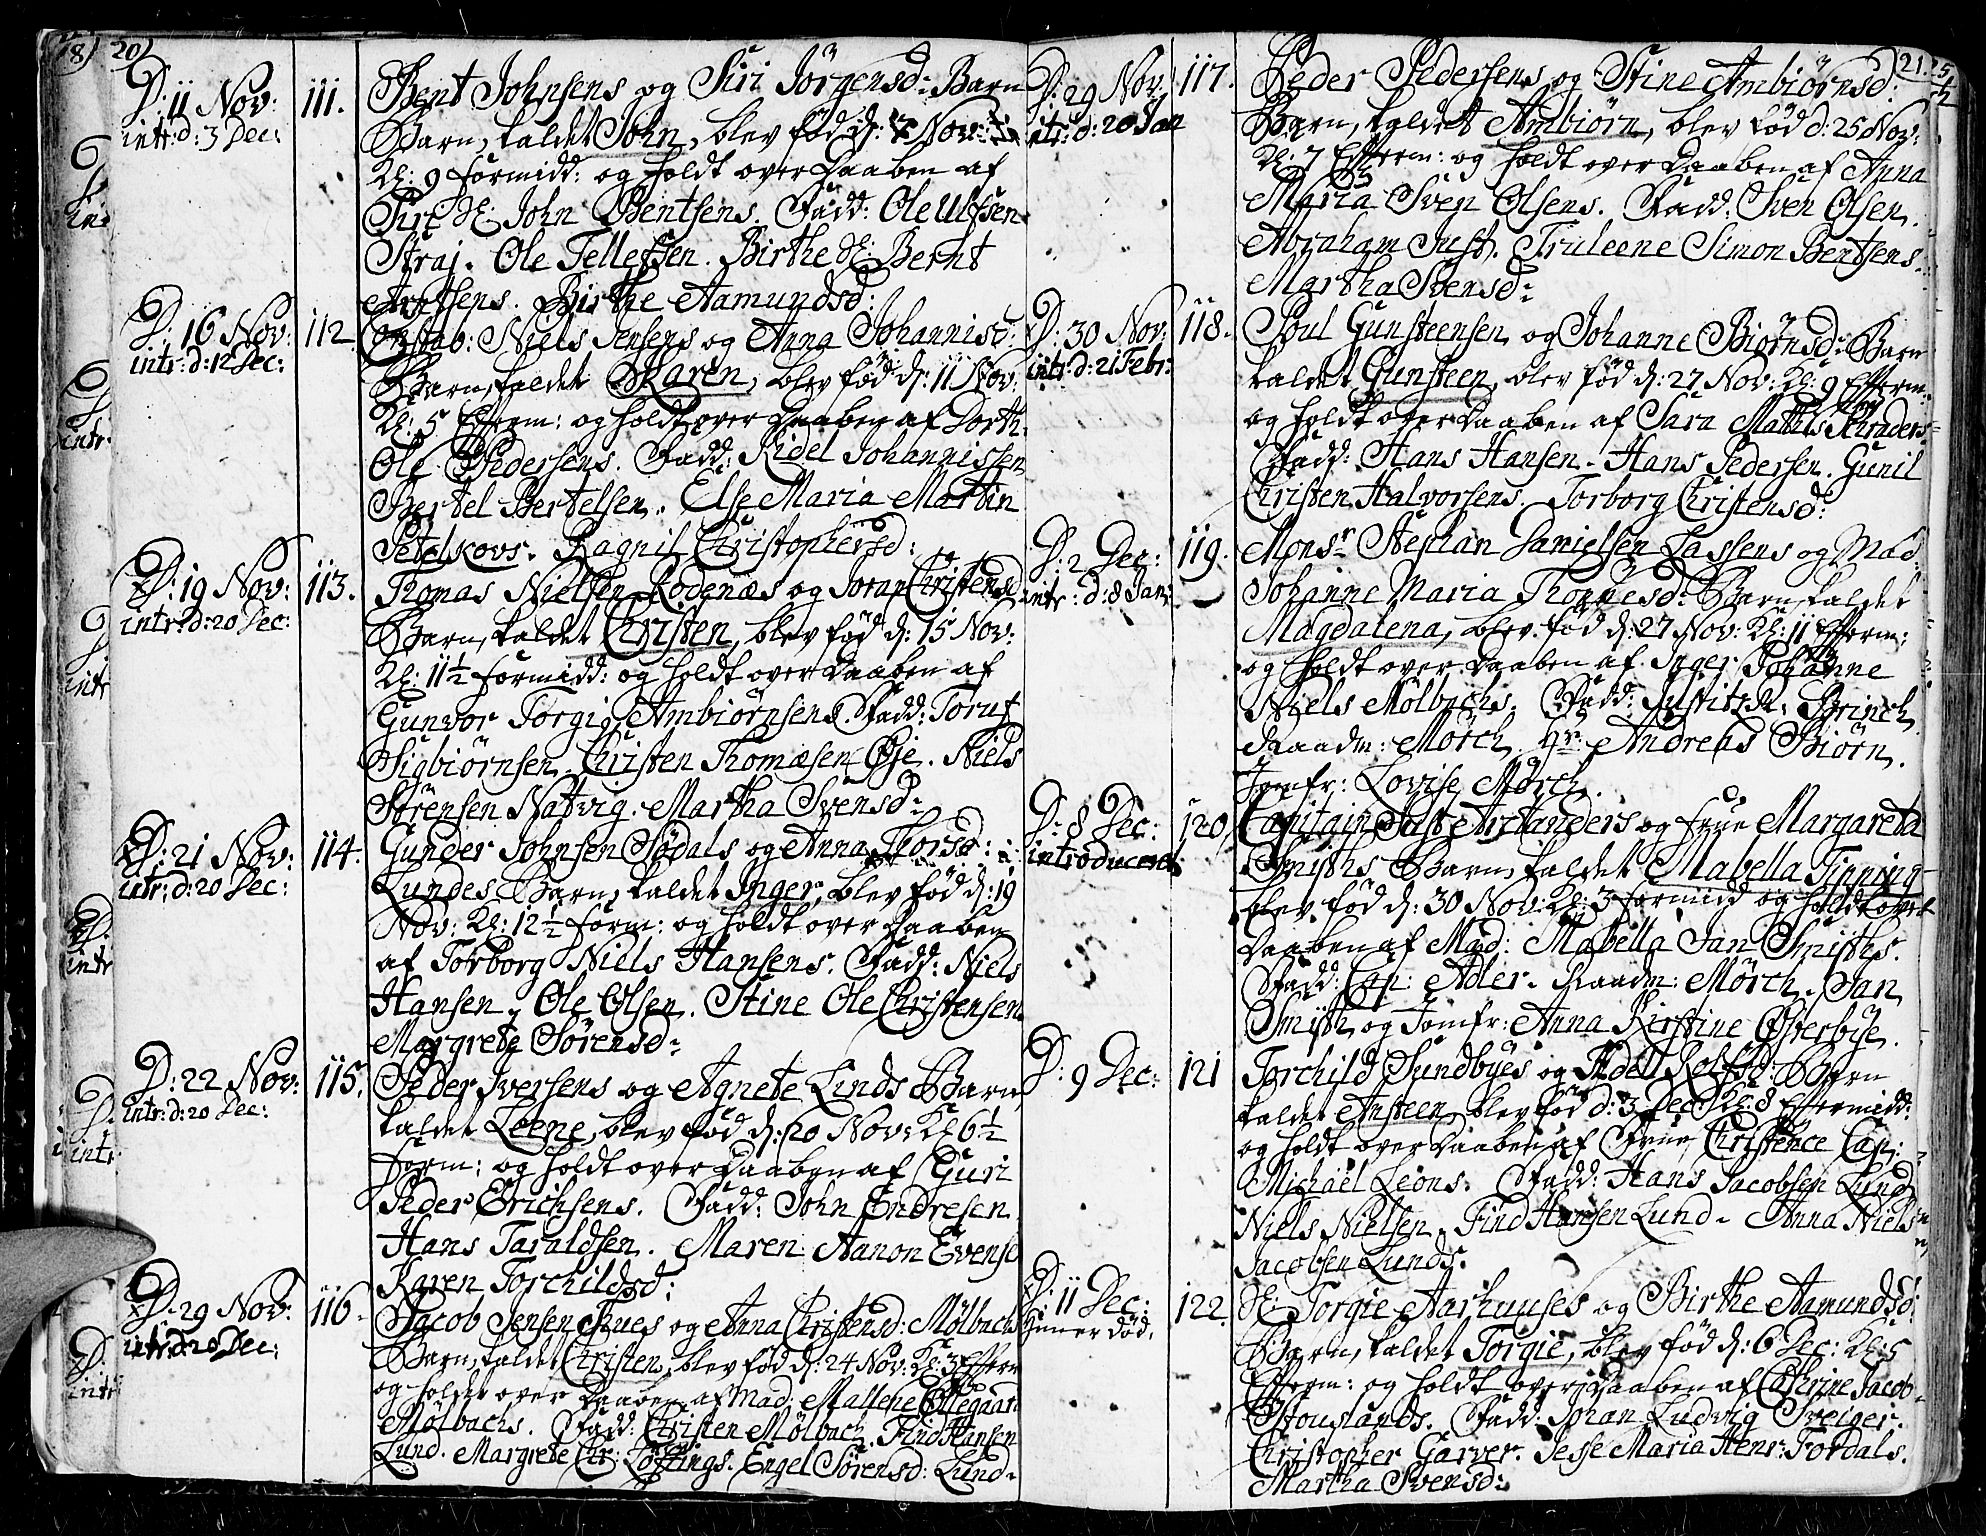 20)
D: 11 Nov: 111.
intr: d: 3 Dec:
Bent Johnsens og Siri Jörgensd: Barn
Barn, kaldet John, blev föd d: 7 Nov:
Kl: 9 formidd: og holdt over Daaben af
Siri Sl: John Bentsens. Fadd: Ole Ulfsen
Straj. Ole Tellefsen. Birthe Sl: Bernt
Arntsens. Birthe Aamundsd:
D: 16 Nov: 112
intr: d: 12 Dec:
Niels Jensens og Anna Johannisd:
Barn, kaldet Karen, blev föd d: 11 Nov:
Kl: 5 Efterm: og holdt over Daaben af Dorth.
Ole Pedersens. Fadd: Kidel Johannissen
Bertel Bertelsen. Else Maria Martin
Petelkovs. Ragnil Christophersd:
D: 19 Nov: 113.
intr: d: 20 Dec:
Thomas Nielsen Rodenæs og Joran Christensd
Barn, kaldet Christen, blev föd d: 15 Nov:
Kl: 11½ formidd: og holdt over Daaben af
Gunvor Torgig Ambiörnsens. Fadd: Toruf
Sigbiörnsen. Christen Thomæsen Öje. Niels
Sörensen Nattvig. Martha Svensd:
D: 21 Nov: 114.
intr: d: 20 Dec:
Gunder Johnsen Södals og Anna Thorsd:
Lundes Barn, kaldet Inger, blev föd d: 19
Nov: Kl: 12½ form: og holdt over Daaben
af Torborg Niels Hansens. Fadd: Niels
Hansen. Ole Olsen. Stine Ole Christensen
Margrete Sörensd:
D: 22 Nov: 115.
intr: d: 20 Dec:
Peder Iversens og Agnete Linds Barn,
kaldet Leene, blev föd d: 20 Nov: Kl 6½
form: og holdt over Daaben af Guri
Peder Erichsens. Fadd: John Endresen
Hans Taraldsen. Maren Aanon Evense
Karen Torchildsd:
D. 29 Nov: 116.
intr: d: 20 Dec:
Jacob Jensen Fues og Anna Christensd: Mölbachs
Barn, kaldet Christen, blev föd d: 24 Nov: Kl: 3 Efterm
og holdet over Daaben af Mad: Mallene Ollegaard
Mölbachs. Fadd: Christen Mölbach. Find Hansen
Lund. Margrete Chr: Löttings. Engel Sörensd: Lund.
21.
D: 29 Nov: 117.
intr: d: 20 Jan
Peder Pedersens og Stine Ambiörnsd:
Barn, kaldet Ambiörn, blev föd d: 25 Nov:
Kl: 7 Efterm: og holdt over Daaben af Anna
Maria Sven Olsens. Fadd: Sven Olsen.
Abraham Just. Truleene Simon Bentsens.
Martha Svensd:
D: 30 Nov: 118.
intr: d: 21 Febr:
Poul Gunsteensen og Johanne Biörnsd: Barn
kaldet Gunsteen, blev föd d: 27 Nov: Kl: 9 Efterm:
og holdt over Daaben af Sara Mathis Schraders
Fadd: Hans Hansen. Hans Pedersen. Gunil
Christen Halvorsens. Torborg Christensd:
D: 2 Dec: 119.
intr: d: 8 Jan:
Monsr Stephan Danielsen Lassens og Mad
Johanne Maria Thommesd: Barn, kaldet
Magdalena, blev föd d: 27 Nov: Kl: 11 Efterm:
og holdt over Daaben af Inger Johanne
Niels Mölbachs. Fadd: Justitz R: Brinch
Raadm: Mörch. Hr Andreas Biörn.
Jomfr: Lovise Mörch.
D: 8 Dec: 120.
introduceret
Capitain Just Arctanders og frue Margareta
Smiths Barn, kaldet Mabella Tinning
blev föd d: 30 Nov: Kl: 3 formidd og holdt over
Daaben af Mad: Mabella Jan Smiths.
Fadd: Cap: Adler. Raadm: Mörch. Jan
Smith og Jomfr: Anna Kirstine Österbye.
D: 9 Dec: 121
Torchild Sundbyes og Adel Rolfsd: Barn
kaldet Ansteen, blev föd d: 3 Dec: Kl: 8 Eftermidd:
og holdt over Daaben af Frue Christence Cap:
Michaël Leons. Fadd: Hans Jacobsen Lund
Niels Nielsen. Find Hansen Lund. Anna Niels
Jacobsen Lunds.
D: 11 Dec: 122.
Hun er död.
Sl: Torgie Aarhuuses og Birthe Aamundsd:
Barn, kaldet Torgie, blev föd d: 6 Dec: Kl: 5
Efterm: og holdt over Daaben af Cathrine Jacob
Stouslands. Fadd: Johan Ludvig Sveiger.
Christopher Garver. Jesse Maria Henr: Tordals.
Martha Svensd: